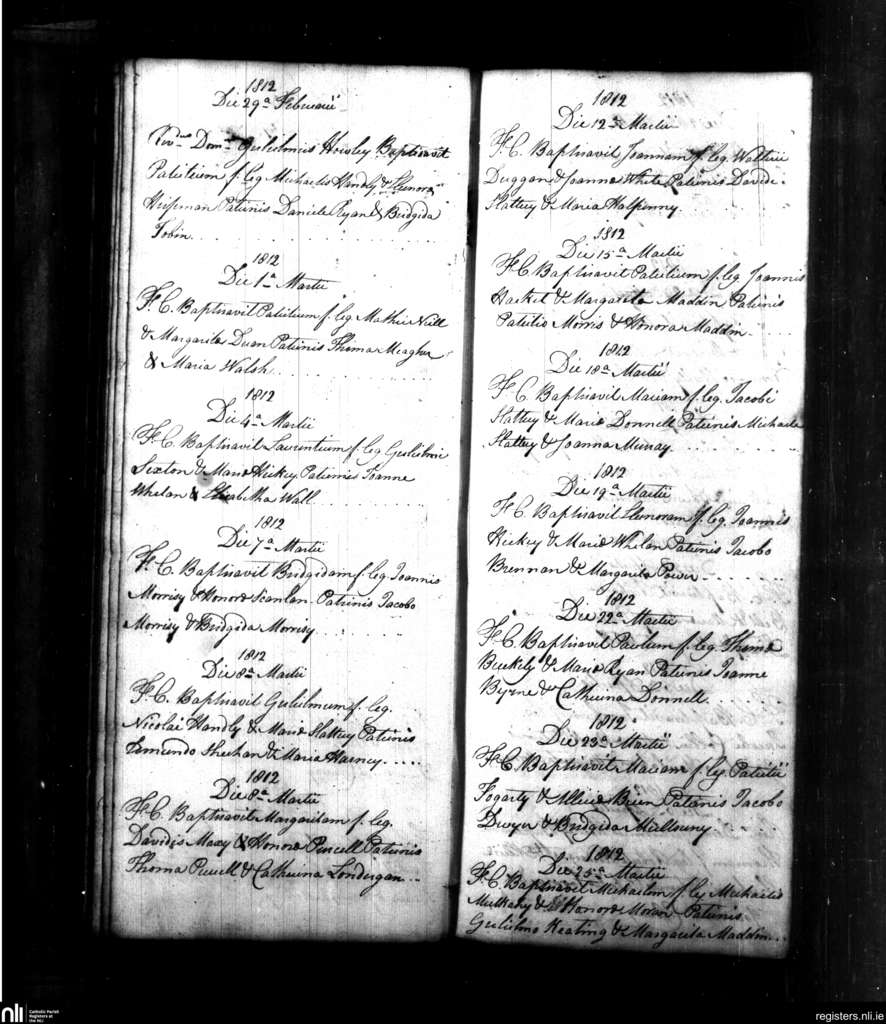 1812
Die 29a Februarii
Revdus Domns Gulielmus Howley Baptisavit
Patritium f. leg Michaelis Handly & Elenora
Heifernan Patrinis Daniele Ryan & Bridgida
Tobin
1812
Die 1a Martii
F. C. Baptisavit Patritium f. leg Mathei Neill
& Margarita Duan Patrinis Thoma Meagher
& Maria Walsh
1812
Die 4a Martii
F. C. Baptisavit Laurentium f. leg Gulielmi
Sexton & Maria Hickey Patrinis Joanne
Whelan & Elizabetha Wall
1812
Die 7a Martii
F. C. Baptisavit Bridgidam f. leg. Joannis
Morrisy & Honora Scanlan. Patrinis Jacobo
Morrisy & Bridgida Morrisy
1812
Die 8a Martii
F. C. Baptisavit Gulielmum f. leg.
Nicolai Handly & Maria Slattery Patrinis
Edmundo Sheehan & Maria Harney
1812
Die 8a Martii
F. C. Baptisavit Margaritam f. leg.
Davidis Maxy & Honora Purcell Patrinis
Thoma Purcell & Catharina Londergan
1812
Die 12a Martii
F. C. Baptisavit Joannam f. leg. Walteri
Duggan & Joanna White Patrinis Davide
Slattery & Maria Halpenny
1812
Die 15a Martii
F. C. Baptisavit Patritium f. leg. Joannis
Hacket & Margarita Maddin Patrinis
Patritio Morris & Honora Maddin
1812
Die 18a Martii
F. C. Baptisavit Mariam f. leg. Jacobi
Slattery & Maria Donnell Patrinis Michaele
Slattery & Joanna Murray
1812
Die 19a Martii
F. C. Baptisavit Elenoram f. leg. Joannis
Hickey & Maria Whelan Patrinis Jacobo
Brennan & Margarita Power
1812
Die 22a Martii
F. C. Baptisavit Paulum f. leg. Thoma
Buckely & Maria Ryan Patrinis Joanne
Byrne & Catharina Donnell
1812
Die 23a Martii
F. C. Baptisavit Mariam f. leg. Patritii
Fogarty & Alicia Brien Patrinis Jacobo
Dwyer & Bridgida Mullowny
1812
Die 25a Martii
F. C. Baptisavit Michaelem f. leg Michaelis
Mulkahy & Honora Moran Patrinis
Gulielmo Keating & Margarita Maddin
nli
Catholic Parish
Registers at
the NLI
registers.nli.ie